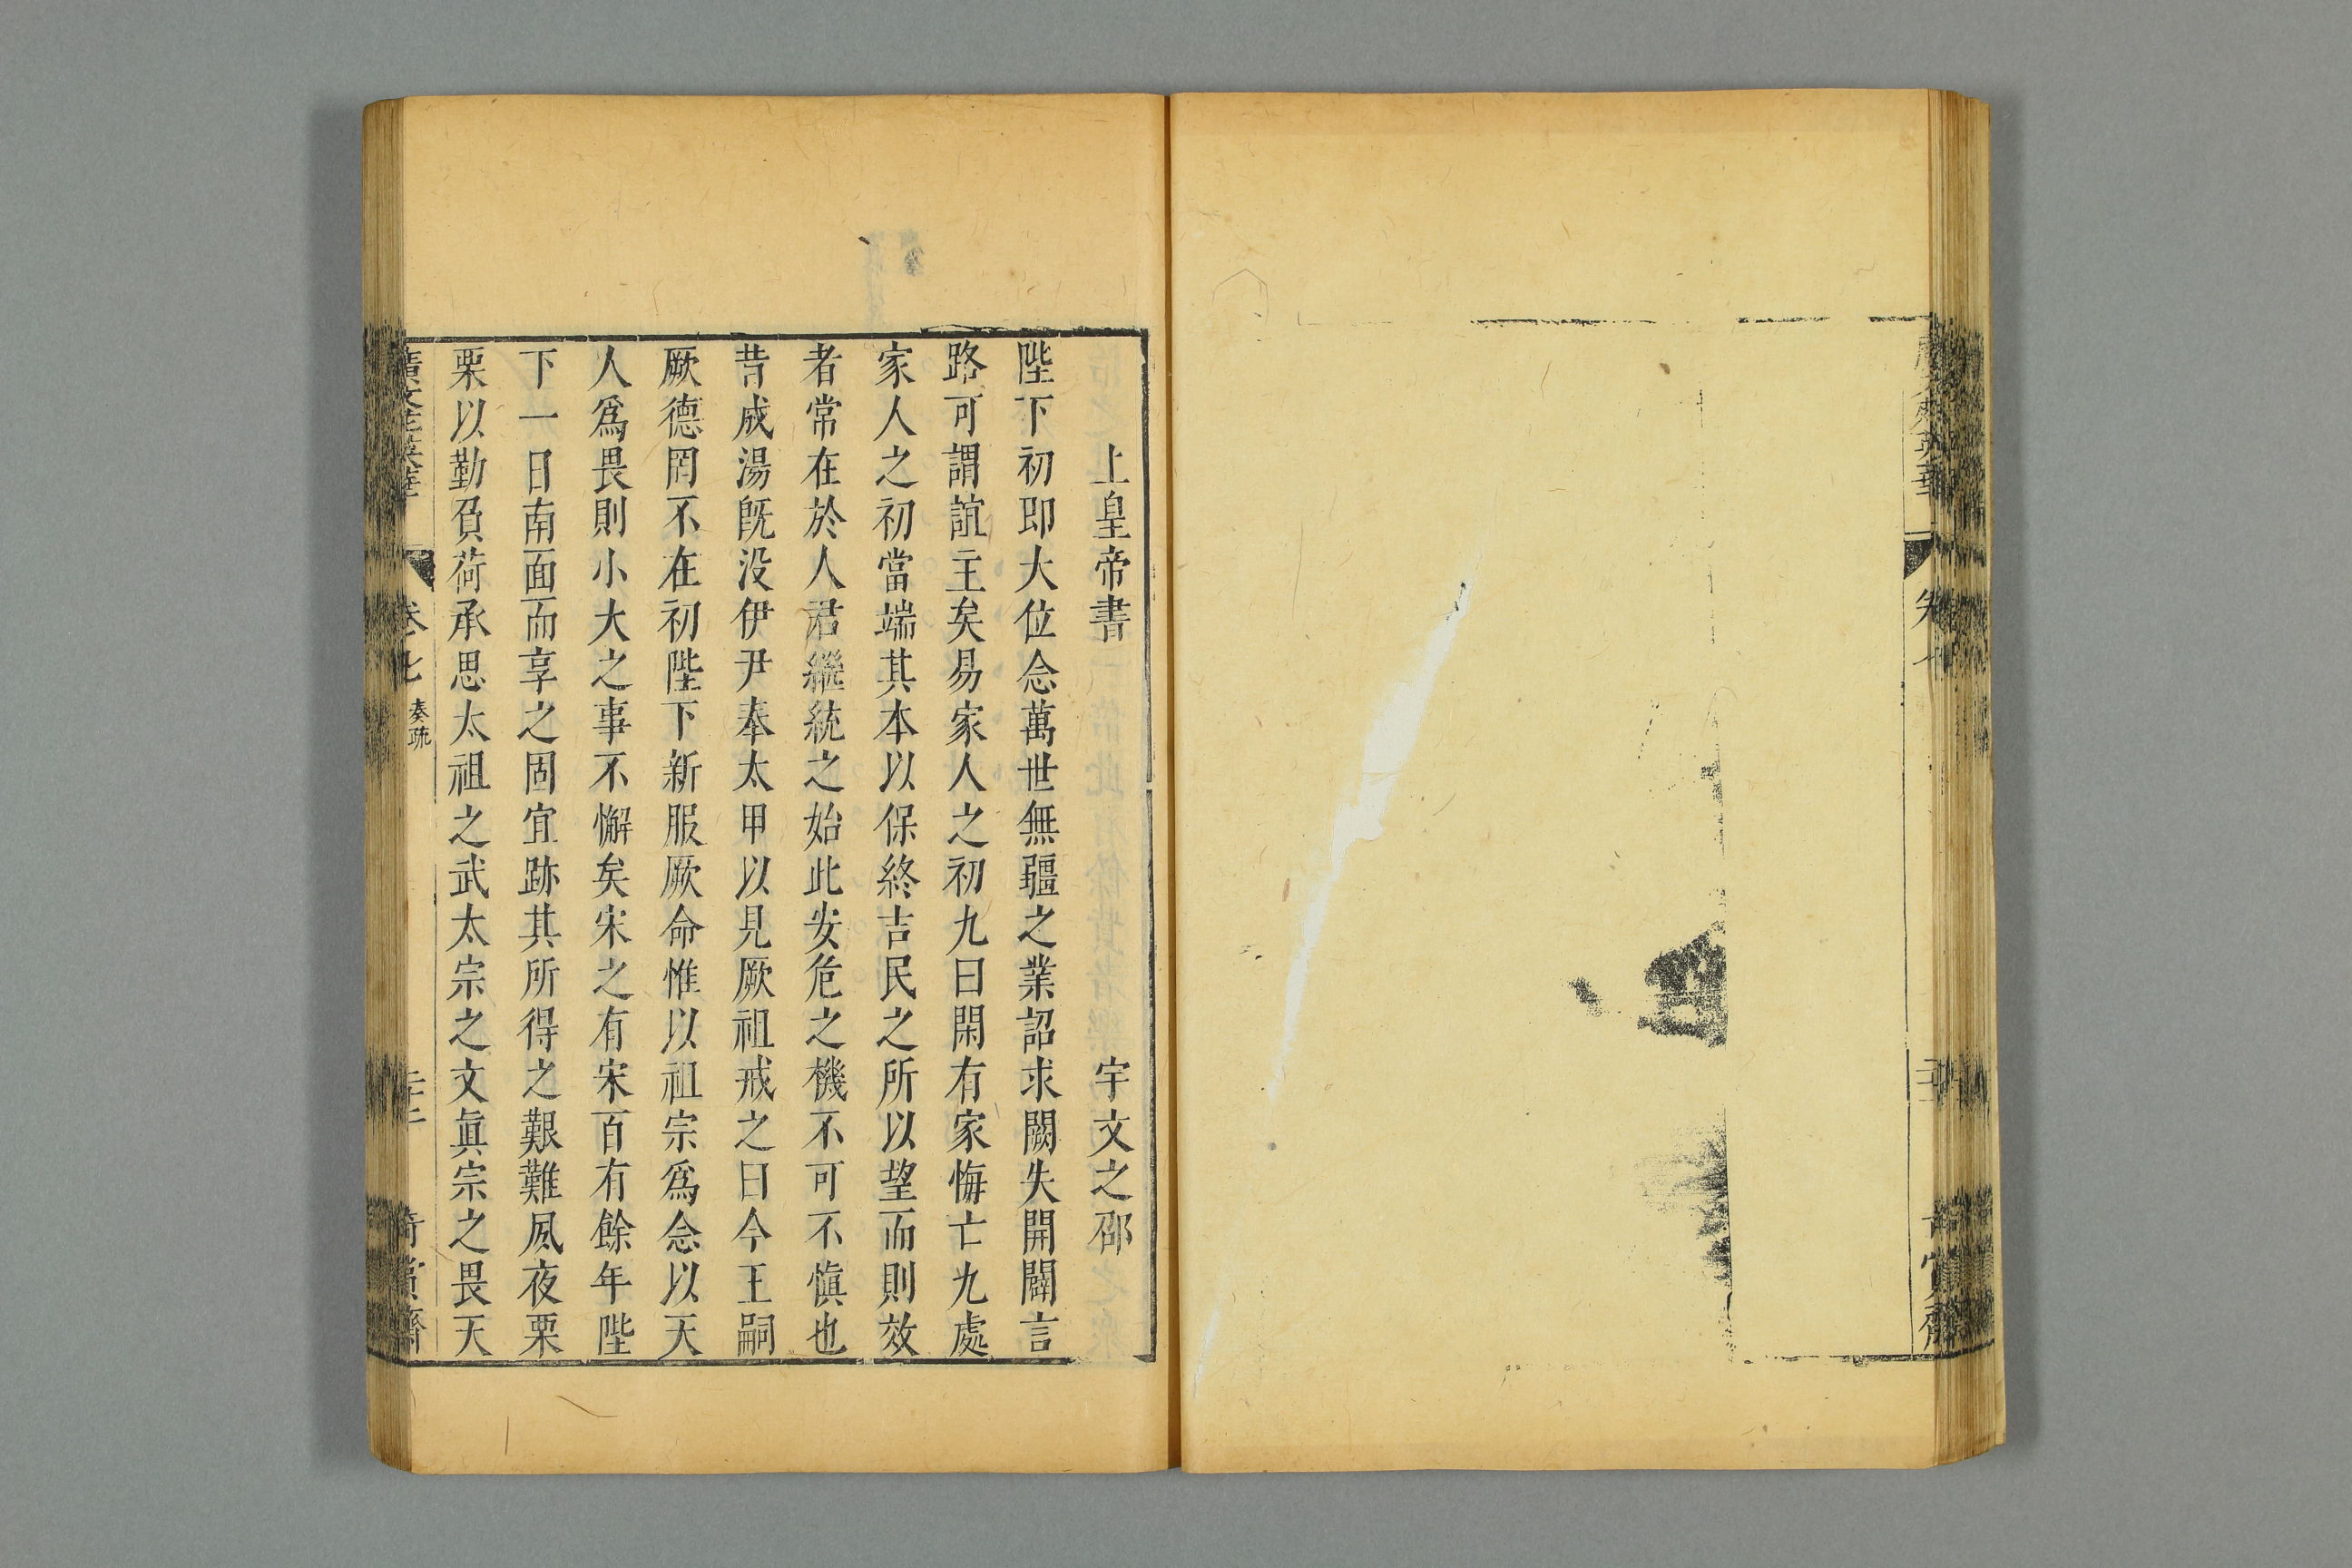 上皇帝書　宇文之邵
陛下初即大位念萬世無疆之業詔求闕失開闢言
路可謂誼主矣易家人之初九曰閑有家悔亡九處
家人之初當端其本以保終吉民之所以望而則效
者常在於人君繼統之始此安危之機不可不慎也
昔成湯旣没伊尹奉太甲以見厥祖戒之曰今王嗣
厥德罔不在初陛下新服厥命惟以祖宗爲念以天
人爲畏則小大之事不懈矣宋之有宋百有餘年陛
下一日南面而享之固宜跡其所得之艱難夙夜栗
栗以勤負荷承思太祖之武太宗之文眞宗之畏天
廣文苑英華
卷七
奏疏